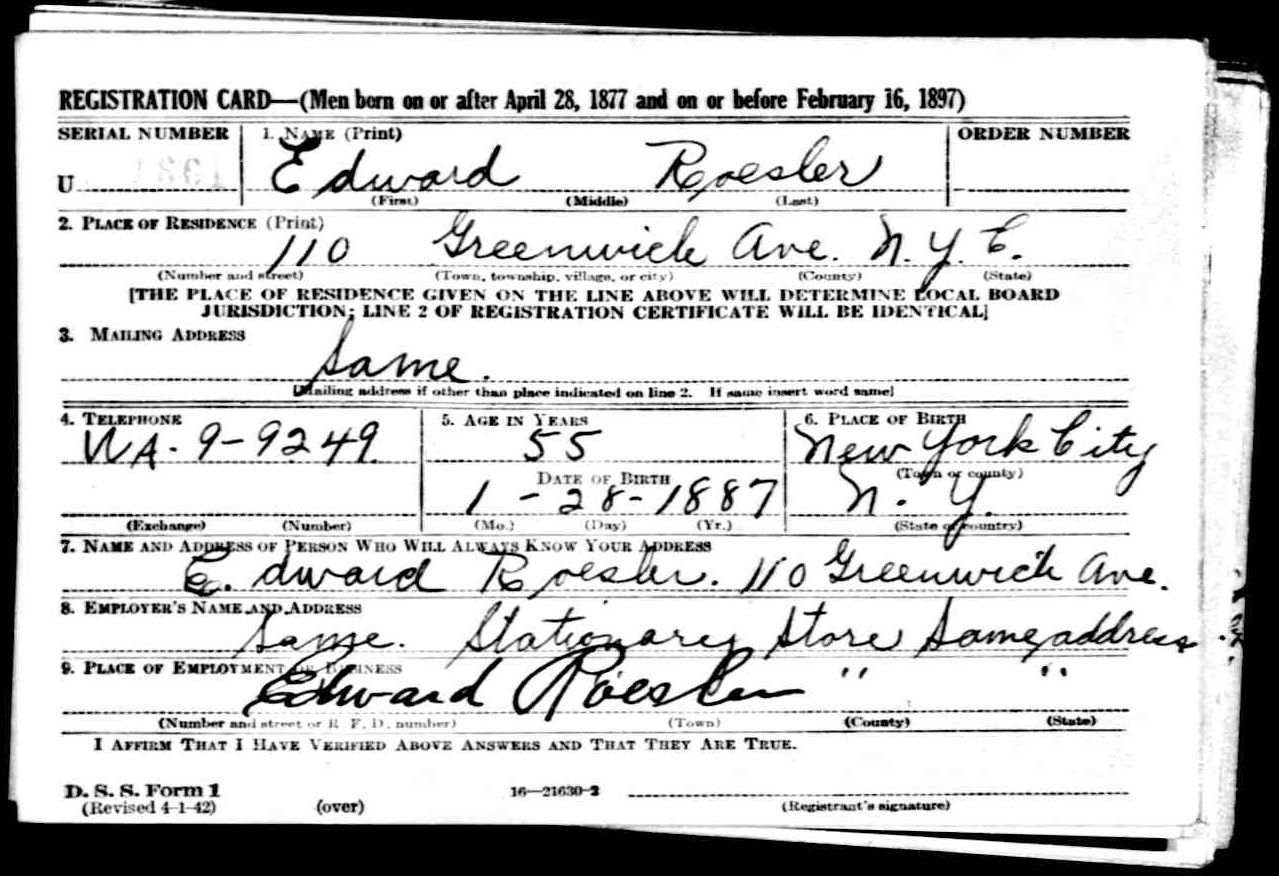 REGISTRATION CARD—(Men born on or after April 28, 1877 and on or before February 16, 1897)
SERIAL NUMBER 1. NAME (Print) ORDER NUMBER
U Edward Roesler
(First) (Middle) (Last)
2. PLACE OF RESIDENCE (Print)
110 Greenwich Ave. N. Y. C.
(Number and street) (Town, township, village, or city) (County) (State)
[THE PLACE OF RESIDENCE GIVEN ON THE LINE ABOVE WILL DETERMINE LOCAL BOARD
JURISDICTION; LINE 2 OF REGISTRATION CERTIFICATE WILL BE IDENTICAL]
3. MAILING ADDRESS
Same.
[Mailing address if other than place indicated on line 2. If same insert word same]
4. TELEPHONE 5. AGE IN YEARS 6. PLACE OF BIRTH
WA. 9-9249 55 New York City
DATE OF BIRTH (Town or county)
1-28-1887 N. Y.
(Exchange) (Number) (Mo.) (Day) (Yr.) (State or country)
7. NAME AND ADDRESS OF PERSON WHO WILL ALWAYS KNOW YOUR ADDRESS
E. dward Roesler. 110 Greenwich Ave.
8. EMPLOYER'S NAME AND ADDRESS
Same. Stationary Store Same address
9. PLACE OF EMPLOYMENT OR BUSINESS
Edward Roesler " "
(Number and street or R. F. D. number) (Town) (County) (State)
I AFFIRM THAT I HAVE VERIFIED ABOVE ANSWERS AND THAT THEY ARE TRUE.
D. S. S. Form 1
(Revised 4-1-42) (over) 16—21630-2 (Registrant's signature)